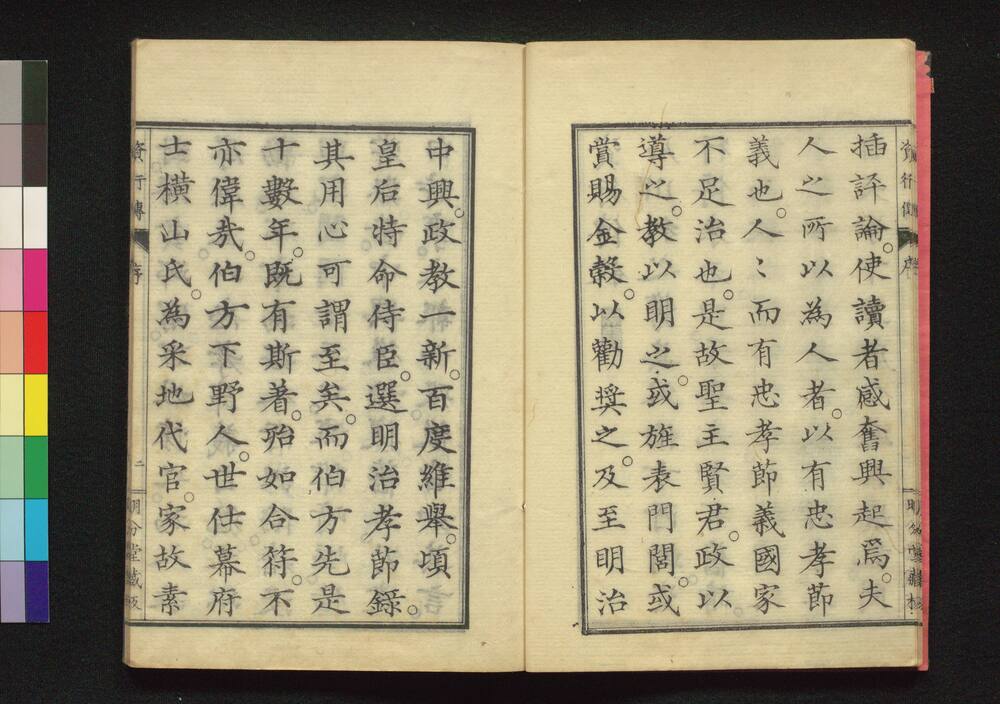 插評論。使讀者感奮興起焉。夫
人之所以為人者。以有忠孝節
義也。人〻而有忠孝節義國家
不足治也。是故聖主賢君。政以
導之。教以明之。或旌表門閭。或
賞賜金穀。以勸奬之。及至明治
中興。政教一新。百度維舉。頃
皇后特命侍臣。選明治孝節錄。
其用心可謂至矣。而伯方先是
十數年。既有斯著。殆如合符。不
亦偉哉。伯方下野人。世仕幕府
士橫山氏。為采地代官。家故素
資行傳
序
二
明分堂藏板